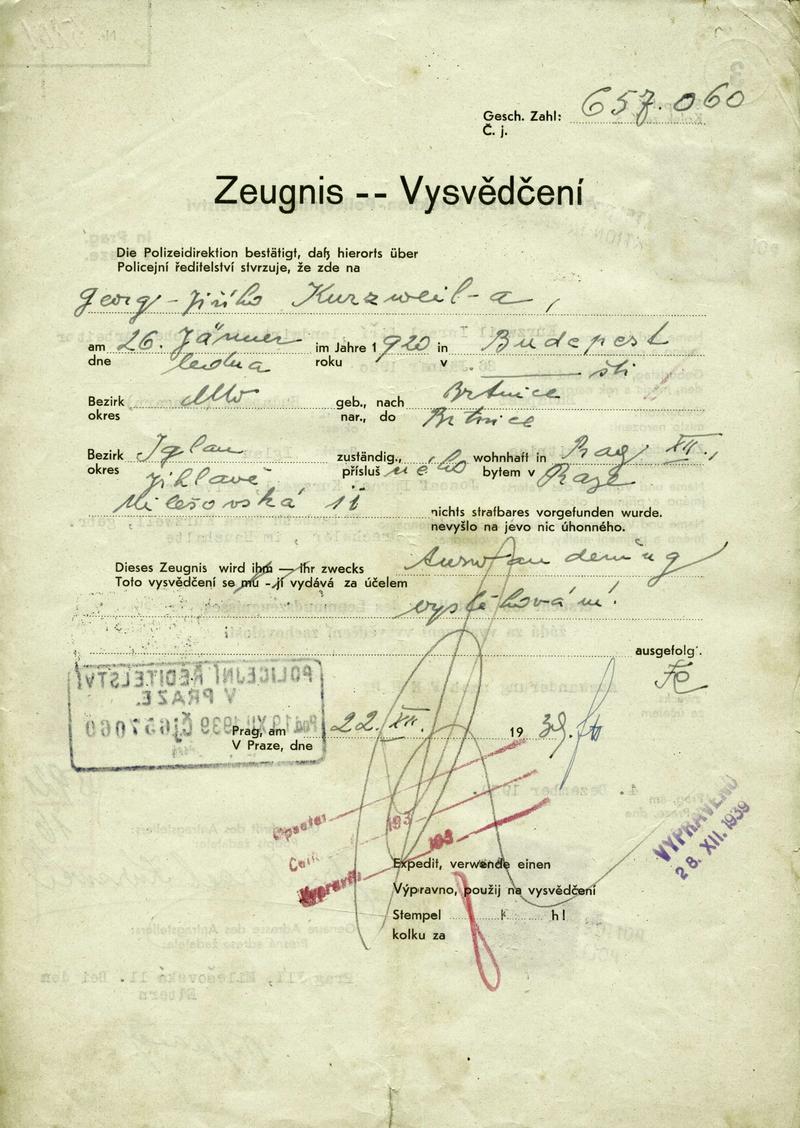 Gesch. Zahl: 657.060
Č. j.
Zeugnis -- Vysvědčení
Die Polizeidirektion bestätigt, daß hierorts über
Policejní ředitelství stvrzuje, že zde na
Georg - Jiřího Kurzweil-a,
am 26. Jänner im Jahre 1920 in Budapest
dne ledna roku v šti
Bezirk dtto geb., nach Brtnice
okres nar., do Brtnice
Bezirk Iglau zuständig., wohnhaft in Prag XII.,
okres Jihlava přísluš ného bytem v Praze
Milešovská 11 nichts strafbares vorgefunden wurde.
nevyšlo na jevo nic úhonného.
Dieses Zeugnis wird ihm — ihr zwecks Auswanderung
Toto vysvědčení se mu - jí vydává za účelem
vystěhování.
ausgefolg.
POLICEJNÍ ŘEDITELSTVÍ
V PRAZE.
Pod 19.XII.1939 Čj 657060
Prag, am 22. XII. 19 39.
V Praze, dne
193
193
Vypravil
VYPRAVENO
28. XII. 1939
Expedit, verwende einen
Výpravno, použij na vysvědčení
Stempel K h!
kolku za